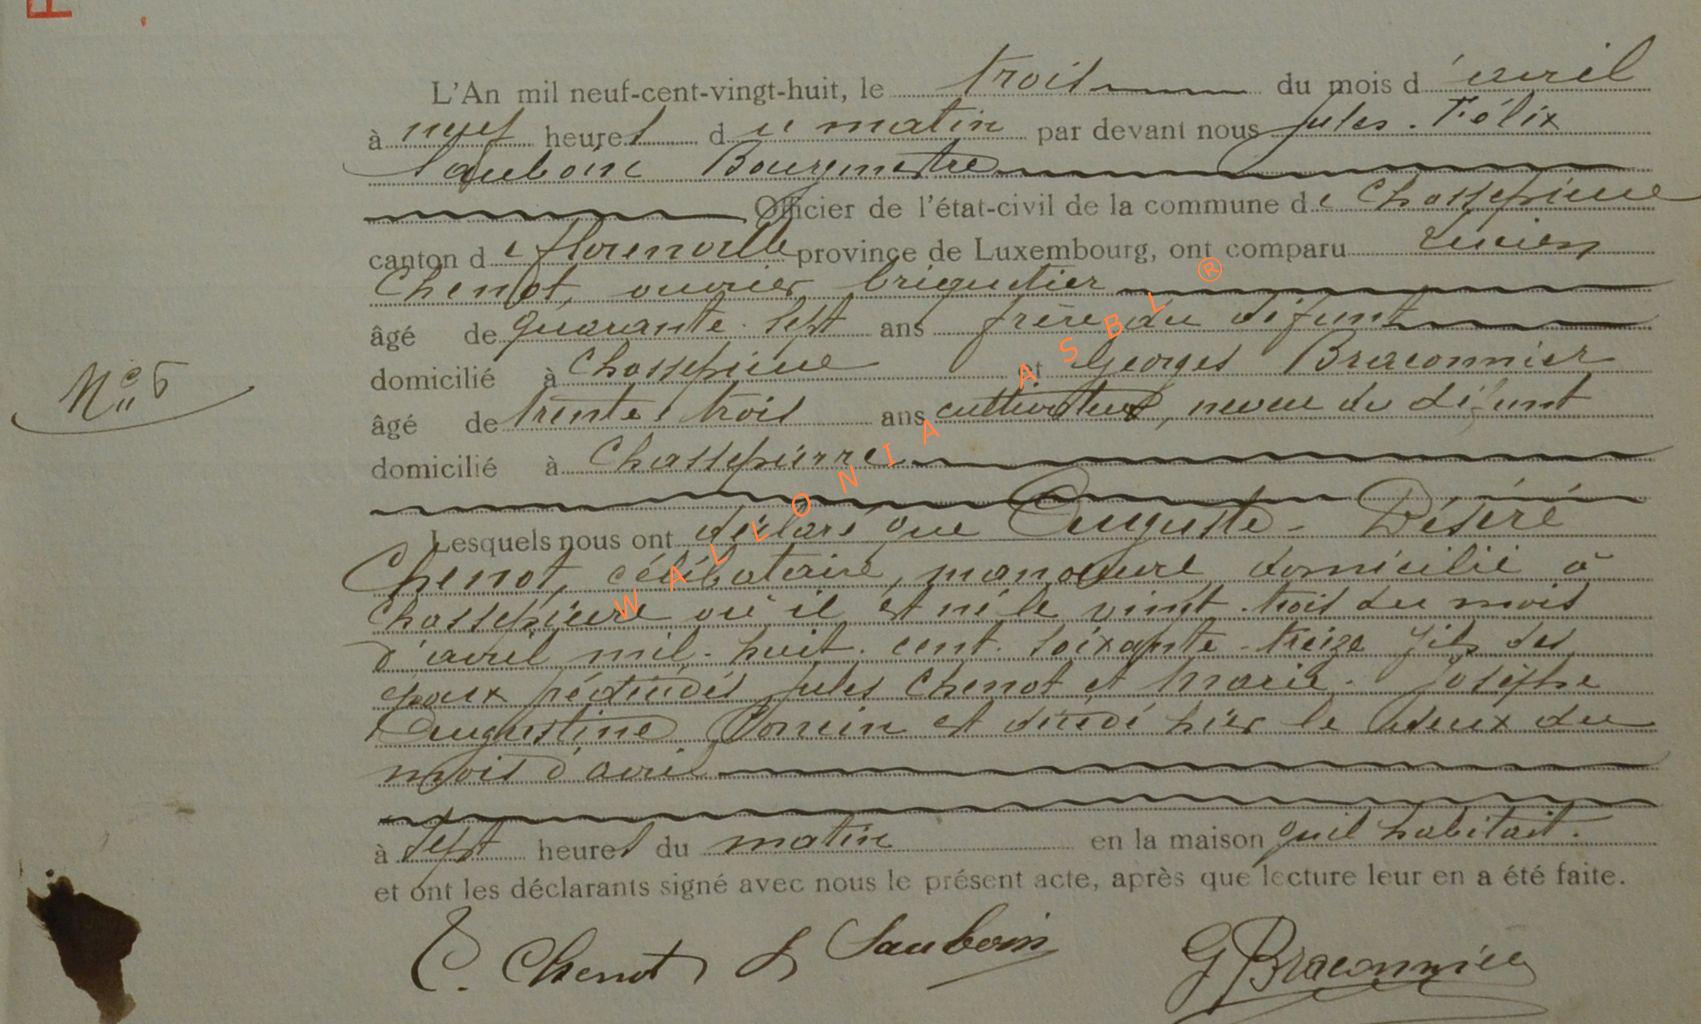 L'An mil neuf-cent-vingt-huit, le trois du mois d'avril
à neuf heures du matin par devant nous Jules-Félix
Sauboin Bourgmestre
Officier de l'état-civil de la commune de Chassepierre
canton de Florenville province de Luxembourg, ont comparu Lucien
Chenot, ouvrier briquetier
âgé de quarante-sept ans frère du défunt
domicilié à Chassepierre et Georges Braconnier
Nº 5
âgé de trente-trois ans cultivateur, neveu du défunt
domicilié à Chassepierre
Lesquels nous ont déclaré que Auguste-Désiré
Chenot, célibataire, manoeuvre, domicilié à
Chassepierre où il est né le vingt-trois du mois
d'avril mil-huit-cent-soixante-treize fils des
époux prédécédés Jules Chenot et Marie-Josèphe
Augustine est décédé hier le deux du
mois d'avril
à sept heures du matin en la maison qu'il habitait.
et ont les déclarants signé avec nous le présent acte, après que lecture leur en a été faite.
Chenot J Sauboin G Braconnier
WALLONIA ASBL ®